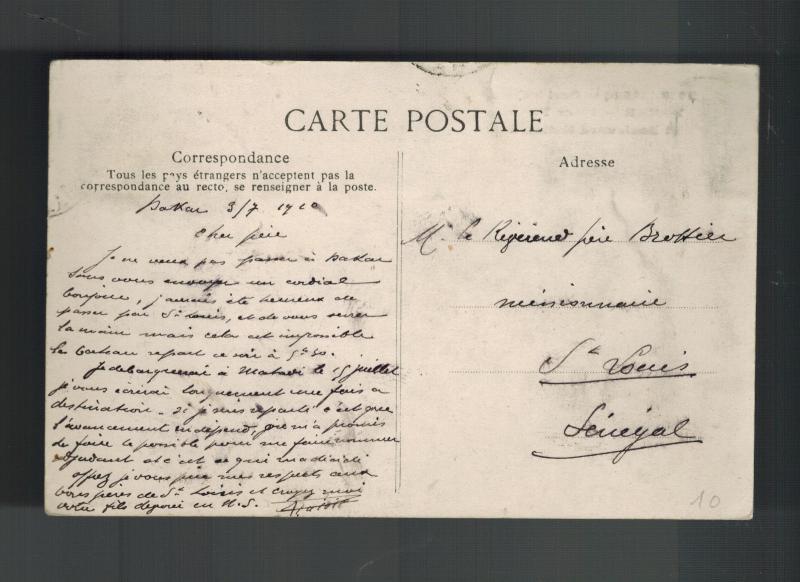 CARTE POSTALE
Correspondance
Tous les pays étrangers n'acceptent pas la
correspondance au recto, se renseigner à la poste.
Dakar 3/7 1910
Cher père
Je ne veux pas passer à Dakar
sans vous envoyer un cordial
bonjour, j'aurais été heureux de
passer par St Louis, et de vous serrer
la main mais cela est impossible
le bateau repart ce soir à 5h30.
Je debarquerai à Matadi le 15 juillet
je vous écrirai longuement une fois a
destination. Si je suis reparti c'est que
l'avancement en dépend, on m'a promis
de faire le possible pour me faire nommer
adjudant et c'est ce qui m'a
je vous prie mes respects aux
bons pères de St Louis et croyez moi
votre fils en N. S.
Adresse
Mr le Révérend père Brottier
missionnaire
St Louis
Sénégal
10